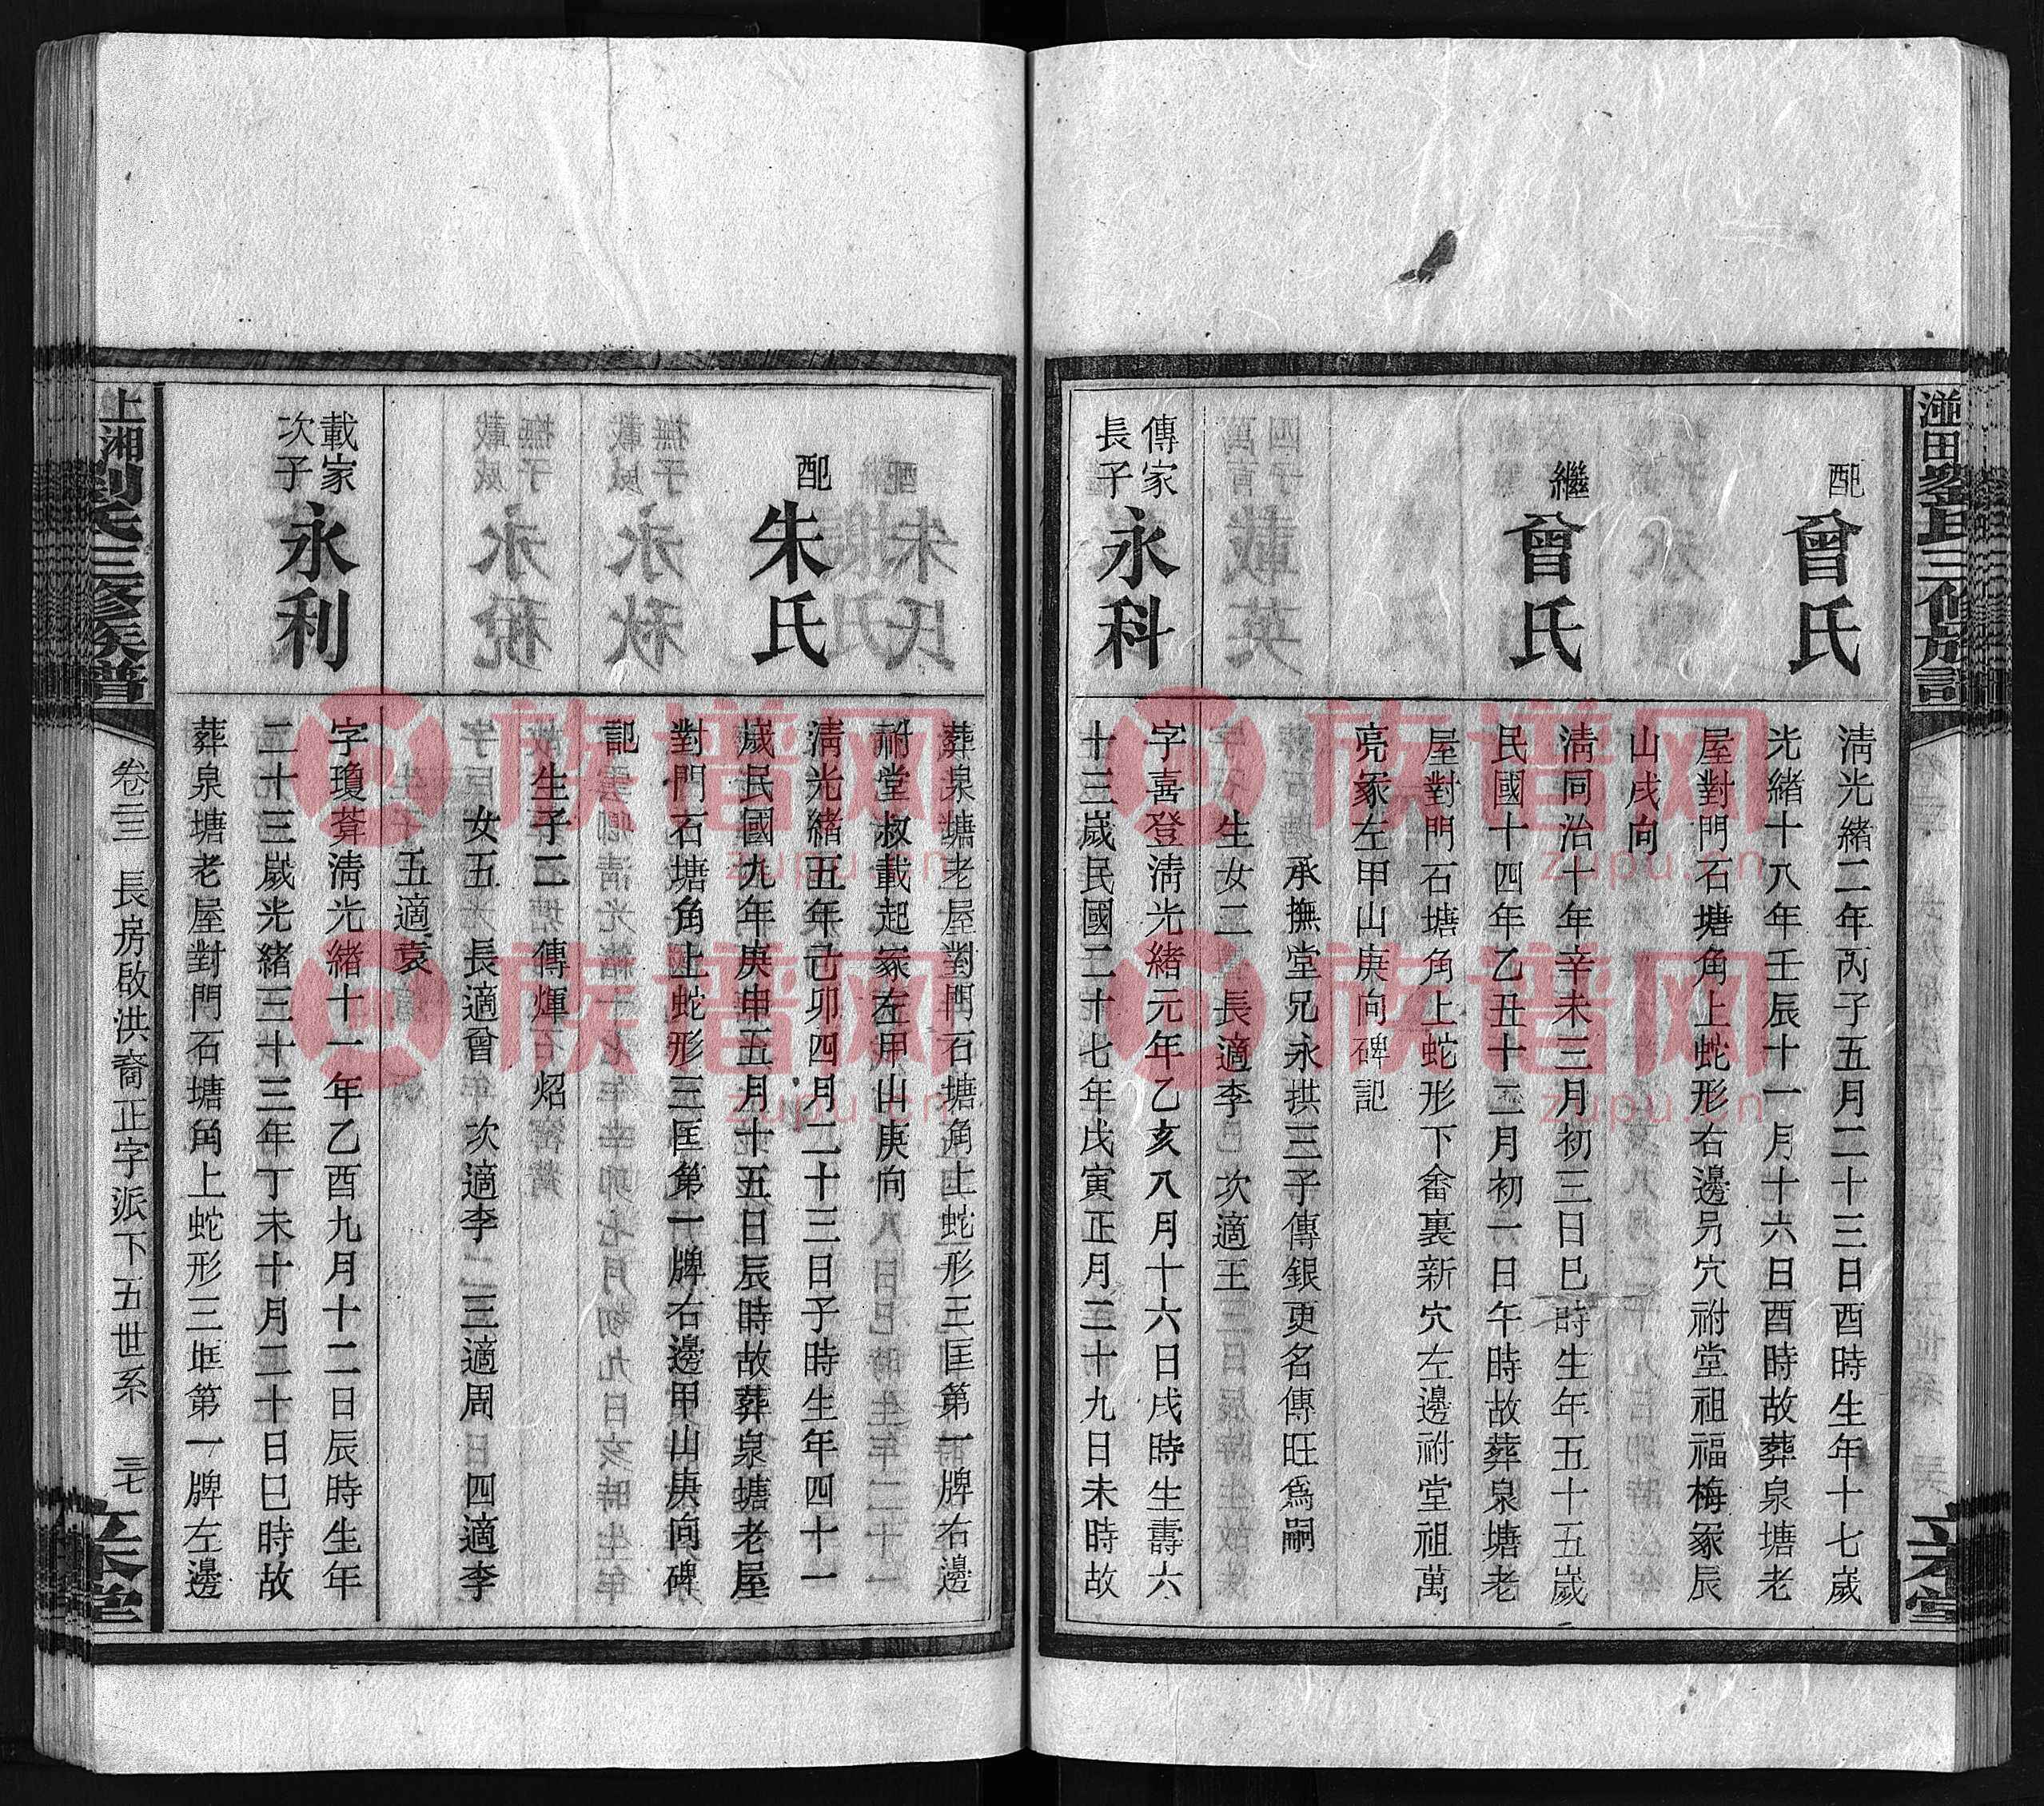 配
曾氏
清光緒二年丙子五月二十三日酉時生年十七歲
光緒十八年壬辰十一月十六日酉時故葬泉塘老
屋對門石塘角上蛇形右邊另穴祔堂祖福梅冢辰
山戌向
繼
曾氏
清同治十年辛未三月初三日巳時生年五十五歲
民國十四年乙丑十二月初一日午時故葬泉塘老
屋對門石塘角上蛇形下畬裏新穴左邊祔堂祖萬
亮冢左甲山庚向碑記
承撫堂兄永拱三子傳銀更名傳旺為嗣
生女二 長適李 次適王
傳家
長子
永科
字喜登清光緒元年乙亥八月十六日戌時生壽六
十三歲民國二十七年戊寅正月二十九日未時故
葬泉塘老屋對門石塘角上蛇形三匡第一牌右邊
祔堂叔載起冢左甲山庚向
配
朱氏
清光緒五年己卯四月二十三日子時生年四十一
歲民國九年庚申五月十五日辰時故葬泉塘老屋
對門石塘角上蛇形三匡第一牌右邊甲山庚向碑
記
生子二 傳煇 炤
女五 長適曾 次適李 三適周 四適李
五適袁
載家
次子
永利
字瓊葊清光緒十一年乙酉九月十二日辰時生年
二十三歲光緒三十三年丁未十月二十日巳時故
葬泉塘老屋對門石塘角上蛇形三匡第一牌左邊
上湘劉氏三修族譜
卷二三 長房啟洪裔正字派下五世系 三七
立本堂
族谱网
zupu.cn
族谱网
zupu.cn
族谱网
zupu.cn
族谱网
zupu.cn